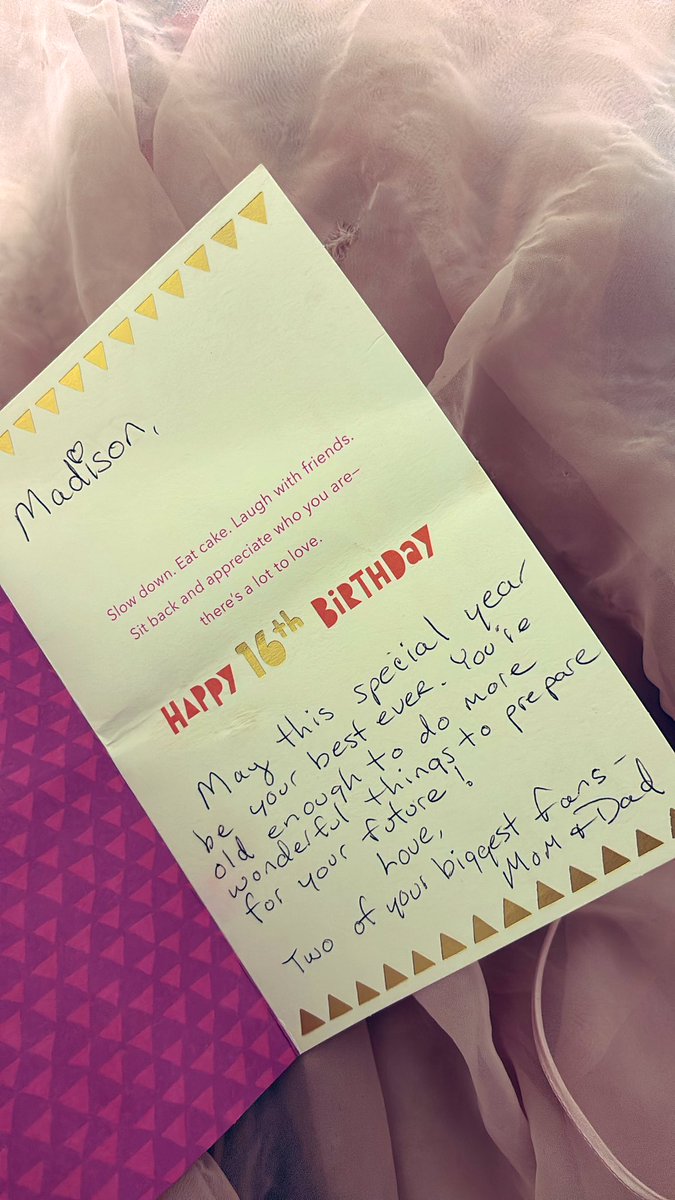 Madison,
Slow down. Eat cake. Laugh with friends.
Sit back and appreciate who you are–
there's a lot to love.
HAPPY 16th BiRTHDay
May this special year
be your best ever. You're
old enough to do more
wonderful things to prepare
for your future!
Love,
Two of your biggest fans–
Mom & Dad